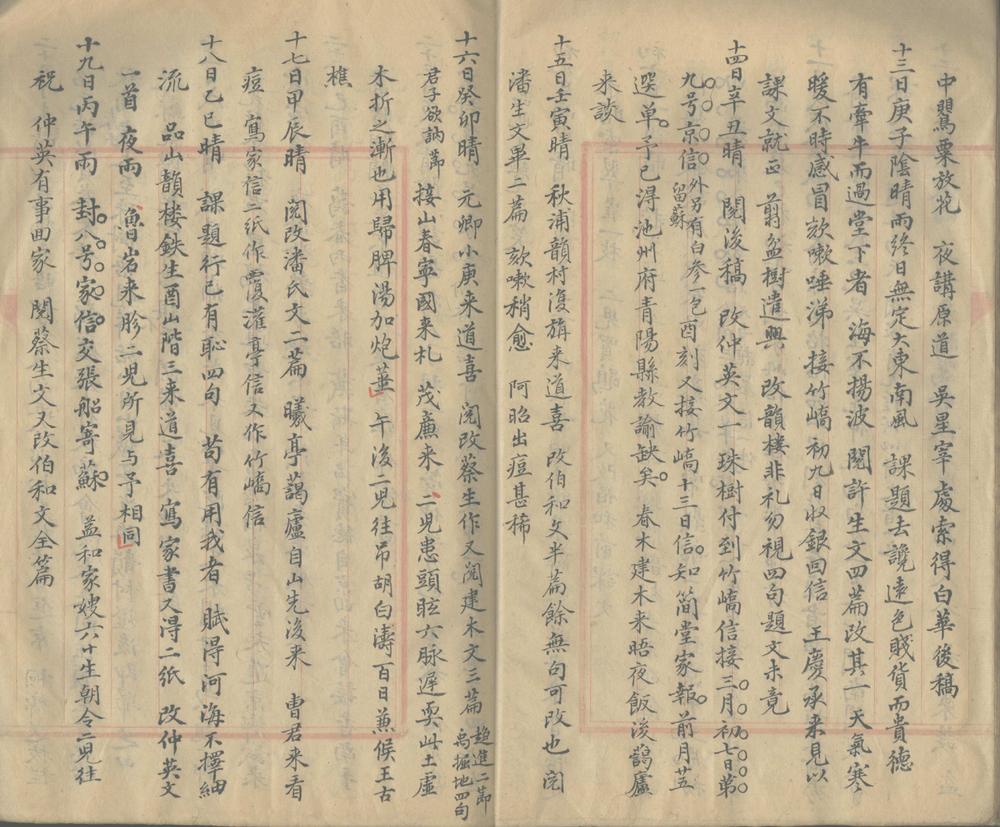 中罌粟放花　夜講原道　吳星宰處索得白華後稿
十三日庚子陰晴雨終日無定大東南風　課題去讒遠色賤貨而貴德
有牽牛而過堂下者　海不揚波　閱許生文四篇改其一　天氣寒
暖不時感冒欬嗽唾涕　接竹嶠初九日收銀回信　王慶承来見以
課文就正　剪盆樹遣興　改韻樓非礼勿視四句題文未竟
十四日辛丑晴　閱浚稿　改仲英文一　珠樹付到竹嶠信接三月初七日第
九号京信外另有白参一包留蘇酉刻又接竹嶠十三日信知簡堂家報前月廿五
選单予已得池州府青陽縣教諭缺矣　春木建木来晤夜飯後藹廬
来談
十五日壬寅晴　秋浦韻村浚旃来道喜　改伯和文半篇餘無句可改也　閱
潘生文畢二篇　欬嗽稍愈　阿昭出痘甚稀
十六日癸卯晴　元卿小庚来道喜　閱改蔡生作又閱建木文三篇趨進二節為掘地四句
君子欲訥節　接山春寧國来札　茂廉来　二児患頭眩六脉遲耎此土虛
木折之漸也用歸脾湯加炮薑　午後二児往吊胡白濤百日兼候王古
樵
十七日甲辰晴　閱改潘氏文二篇　曦亭藹廬自山先後来　曹君来看
痘　寫家信二紙作覆灌亭信又作竹嶠信
十八日乙巳晴　課題行己有恥四句　苟有用我者　賦得河海不擇細
流　品山韻楼鉄生酉山階三来道喜　寫家書又得二紙　改仲英文
一首　夜雨　魯岩来胗二児所見与予相同
十九日丙午雨　封八号家信交張船寄蘇　益和家嫂六十生朝令二児往
祝　仲英有事回家　閱蔡生文又改伯和文全篇